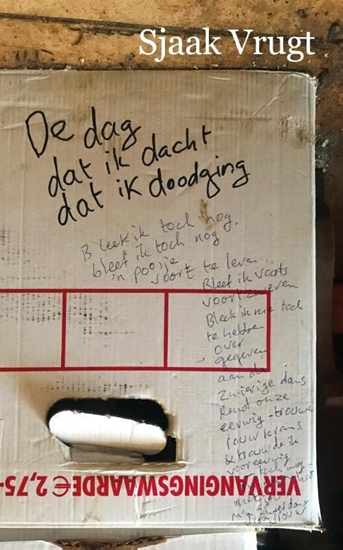 Sjaak Vrugt
De dag
dat ik dacht
dat ik doodging
Bleek ik toch nog
bleef ik toch nog
'n poosje
voort te leven
Bleef ik voorts
voort
Bleek ik me toch
te hebben
over
gegeven
aan de
zwierige dans
Rond onze
eeuwig-trouwe
jouw
voor eeuwig
toch nog
VERVANGINGSWAARDE € 2,75-